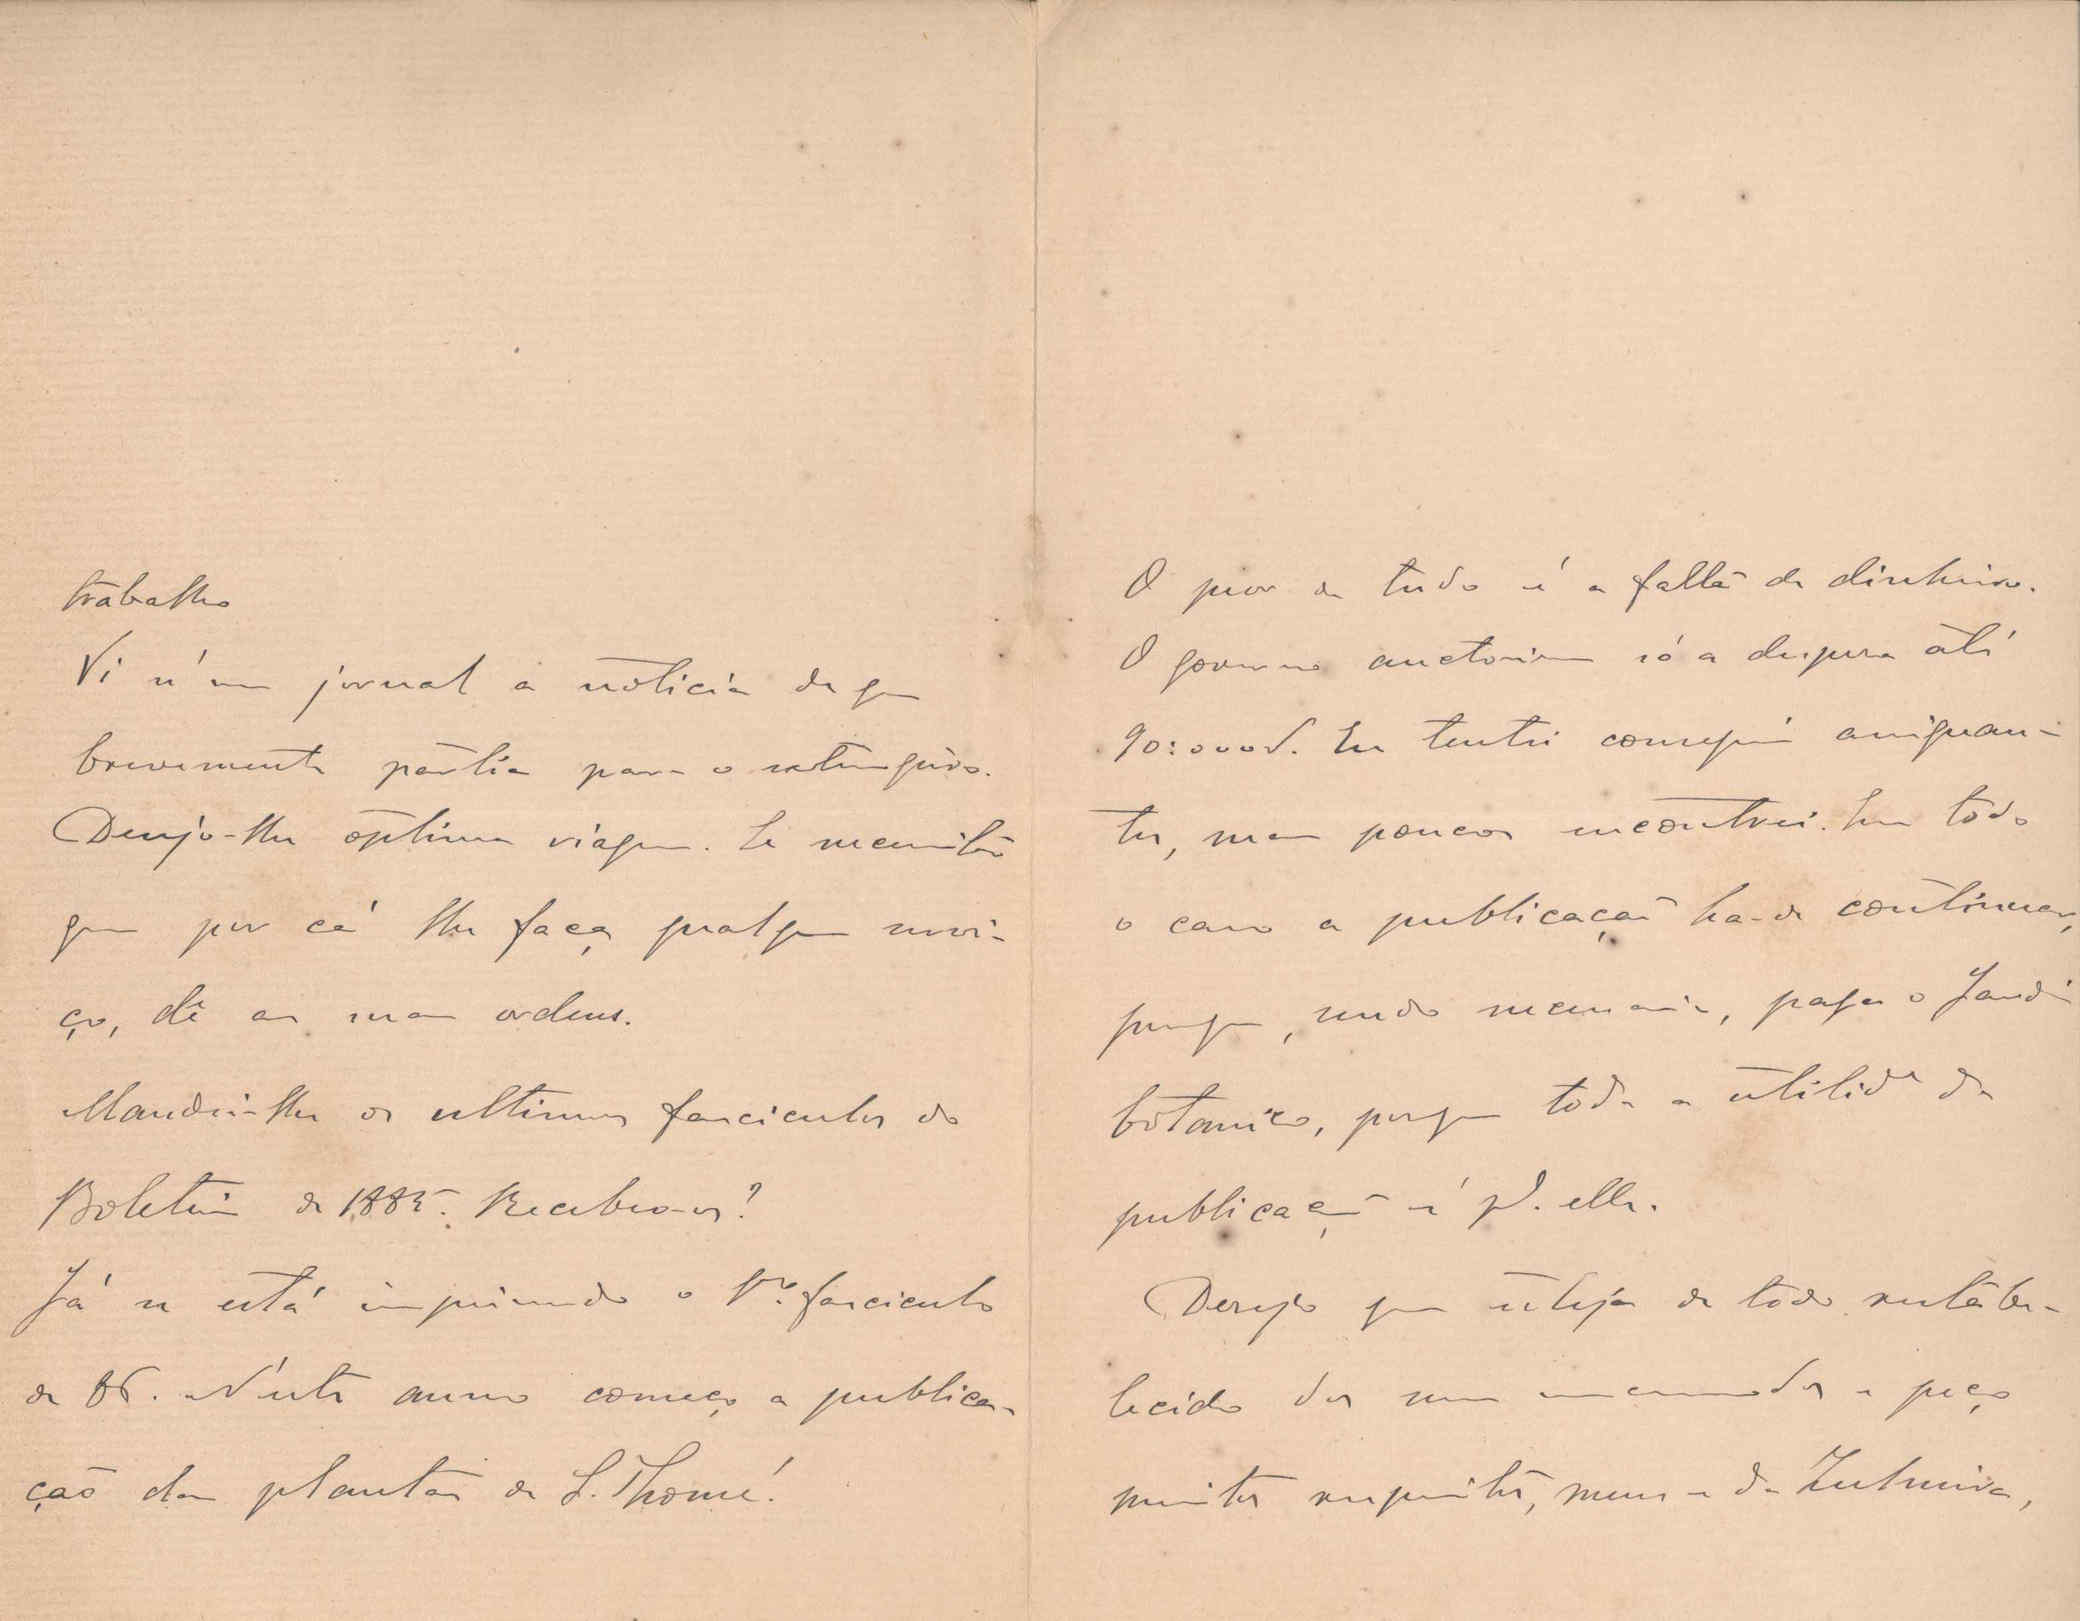 trabalho
Vi n'um jornal a noticia de que
brevemente partia para o estrangeiro.
Desejo-lhe optima viagem. Se necessitar
que por cá lhe faça qualquer servi-
ço, dê as suas ordens.
Mandei-lhe os ultimos fasciculos do
Boletim de 1885. Recebeu-os?
Já se está imprimindo o 1.º fasciculo
de 86. N'este anno começo a publica-
ção das plantas de S. Thomé.
O peor de tudo é a falta de dinheiro.
O governo auctorisou só a despesa até
90:000rs. Eu tentei conseguir assignan-
tes, mas poucos encontrei. Em todo
o caso a publicação ha-de continuar,
porque, sendo necessario, paga o Jardim
botanico, porque toda a utilide da
publicação é pª. elle.
Desejo que esteja de todo restabe-
lecido dos seus incommodos e peço
muitos respeitos, meus e da Zulmira,